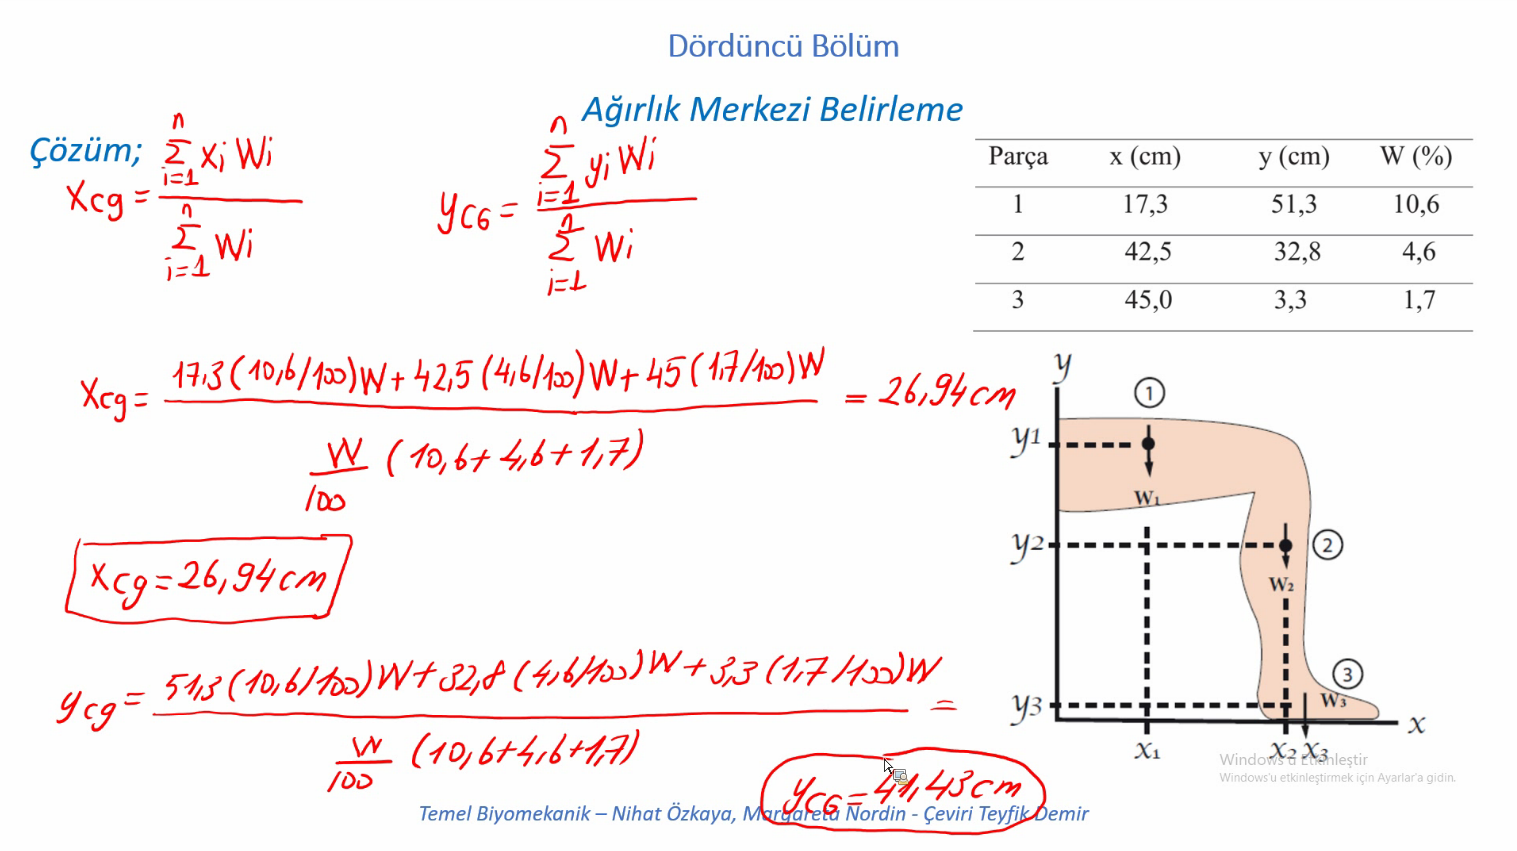 Dördüncü Bölüm
Ağırlık Merkezi Belirleme
Çözüm;
Xcg = n Σ i=1 xi Wi / n Σ i=1 Wi
yCG = n Σ i=1 yi Wi / n Σ i=1 Wi
Parça x (cm) y (cm) W (%)
1 17,3 51,3 10,6
2 42,5 32,8 4,6
3 45,0 3,3 1,7
Xcg = 17,3 (10,6/100)W + 42,5 (4,6/100)W + 45 (1,7/100)W / W/100 (10,6 + 4,6 + 1,7) = 26,94 cm
xcg = 26,94 cm
ycg = 51,3 (10,6/100)W + 32,8 (4,6/100)W + 3,3 (1,7/100)W / W/100 (10,6+4,6+1,7) =
yCG = 41,43 cm
y
1
y1
W1
y2
2
W2
3
y3
W3
x
x1
x2
x3
Windows'u Etkinleştir
Windows'u etkinleştirmek için Ayarlar'a gidin.
Temel Biyomekanik – Nihat Özkaya, Margareta Nordin - Çeviri Teyfik Demir